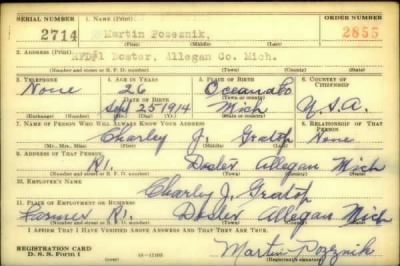 SERIAL NUMBER 1. NAME (Print) ORDER NUMBER
2714 Martin Pozeznik, 2855
(First) (Middle) (Last)
2. ADDRESS (Print)
RFD#1 Doster, Allegan Co. Mich.
(Number and street or R. F. D. number) (Town) (County) (State)
3. TELEPHONE 4. AGE IN YEARS 5. PLACE OF BIRTH 6. COUNTRY OF CITIZENSHIP
None 26 Oceana Co
DATE OF BIRTH (Town or county)
Sept 25 1914 Mich U.S.A.
(Exchange) (Number) (Mo.) (Day) (Yr.) (State or country)
7. NAME OF PERSON WHO WILL ALWAYS KNOW YOUR ADDRESS 8. RELATIONSHIP OF THAT PERSON
Charley J. Gratop None
(Mr., Mrs., Miss) (First) (Middle) (Last)
9. ADDRESS OF THAT PERSON
R1. Doster Allegan Mich
(Number and street or R. F. D. number) (Town) (County) (State)
10. EMPLOYER'S NAME
Charley J. Gratop
11. PLACE OF EMPLOYMENT OR BUSINESS
Farmer R1. Doster Allegan Mich
(Number and street or R. F. D. number) (Town) (County) (State)
I AFFIRM THAT I HAVE VERIFIED ABOVE ANSWERS AND THAT THEY ARE TRUE.
REGISTRATION CARD
D. S. S. Form 1 Martin Pozeznik